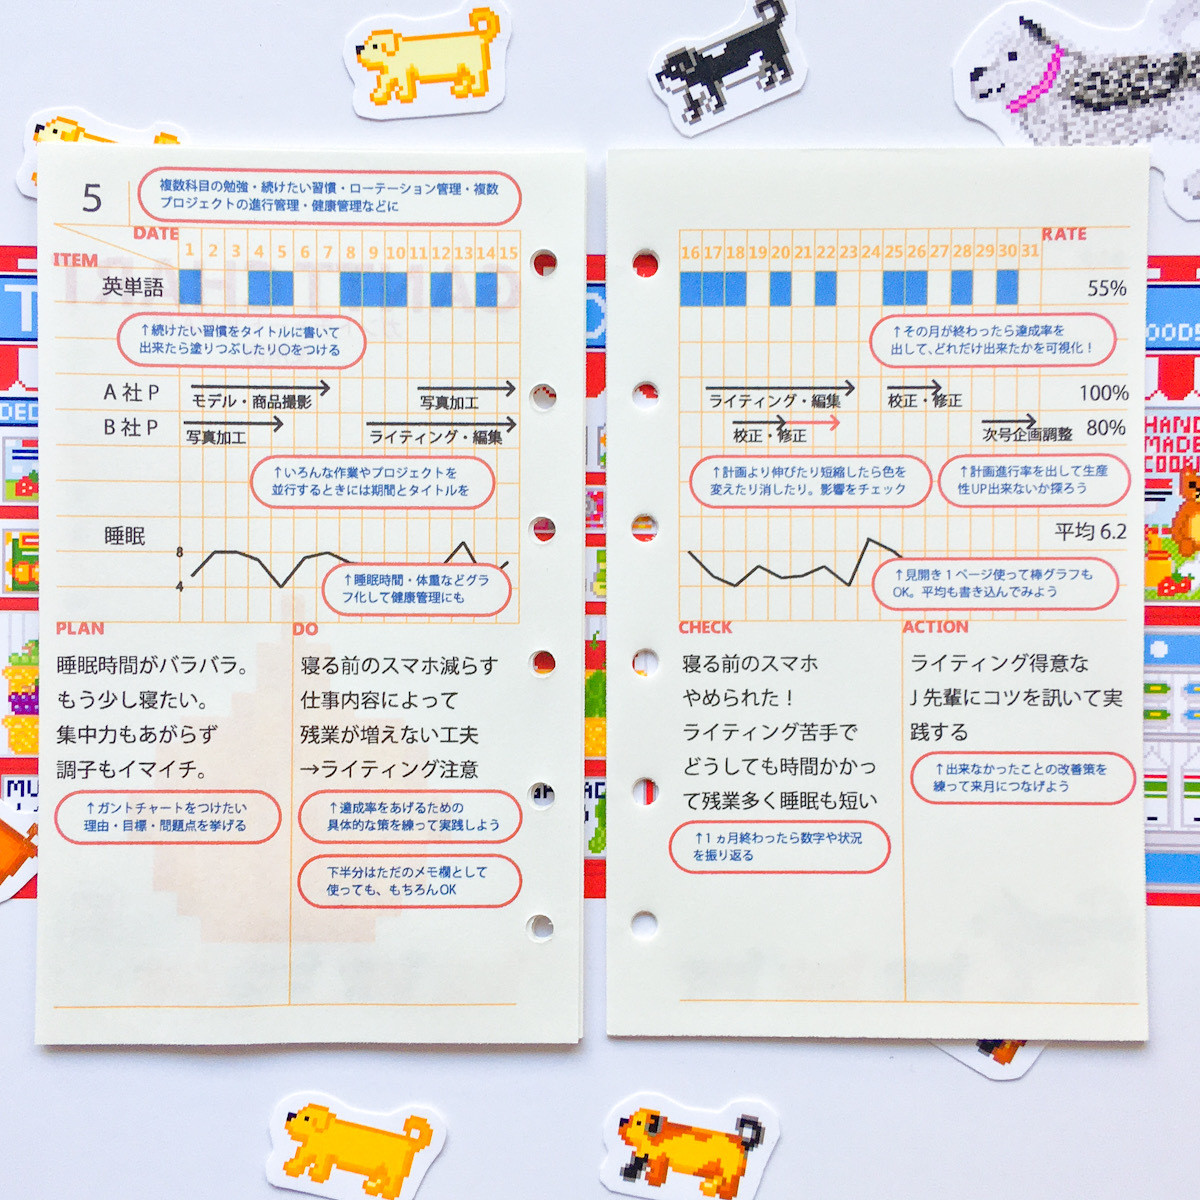 5
複数科目の勉強・続けたい習慣・ローテーション管理・複数
プロジェクトの進行管理・健康管理などに
DATE
ITEM
1 2 3 4 5 6 7 8 9 10 11 12 13 14 15
英単語
↑続けたい習慣をタイトルに書いて
出来たら塗りつぶしたり〇をつける
A社P
モデル・商品撮影
写真加工
B社P
写真加工
ライティング・編集
↑いろんな作業やプロジェクトを
並行するときには期間とタイトルを
睡眠
8
4
↑睡眠時間・体重などグラ
フ化して健康管理にも
PLAN
睡眠時間がバラバラ。
もう少し寝たい。
集中力もあがらず
調子もイマイチ。
↑ガントチャートをつけたい
理由・目標・問題点を挙げる
DO
寝る前のスマホ減らす
仕事内容によって
残業が増えない工夫
→ライティング注意
↑達成率をあげるための
具体的な策を練って実践しよう
下半分はただのメモ欄として
使っても、もちろんOK
RATE
16 17 18 19 20 21 22 23 24 25 26 27 28 29 30 31
55%
↑その月が終わったら達成率を
出して、どれだけ出来たかを可視化！
ライティング・編集
校正・修正
100%
校正・修正
次号企画調整
80%
↑計画より伸びたり短縮したら色を
変えたり消したり。影響をチェック
↑計画進行率を出して生産
性UP出来ないか探ろう
平均 6.2
↑見開き１ページ使って棒グラフも
OK。平均も書き込んでみよう
CHECK
寝る前のスマホ
やめられた！
ライティング苦手で
どうしても時間かかっ
て残業多く睡眠も短い
↑１ヵ月終わったら数字や状況
を振り返る
ACTION
ライティング得意な
J先輩にコツを訊いて実
践する
↑出来なかったことの改善策を
練って来月につなげよう
HAND
MADE
COOK